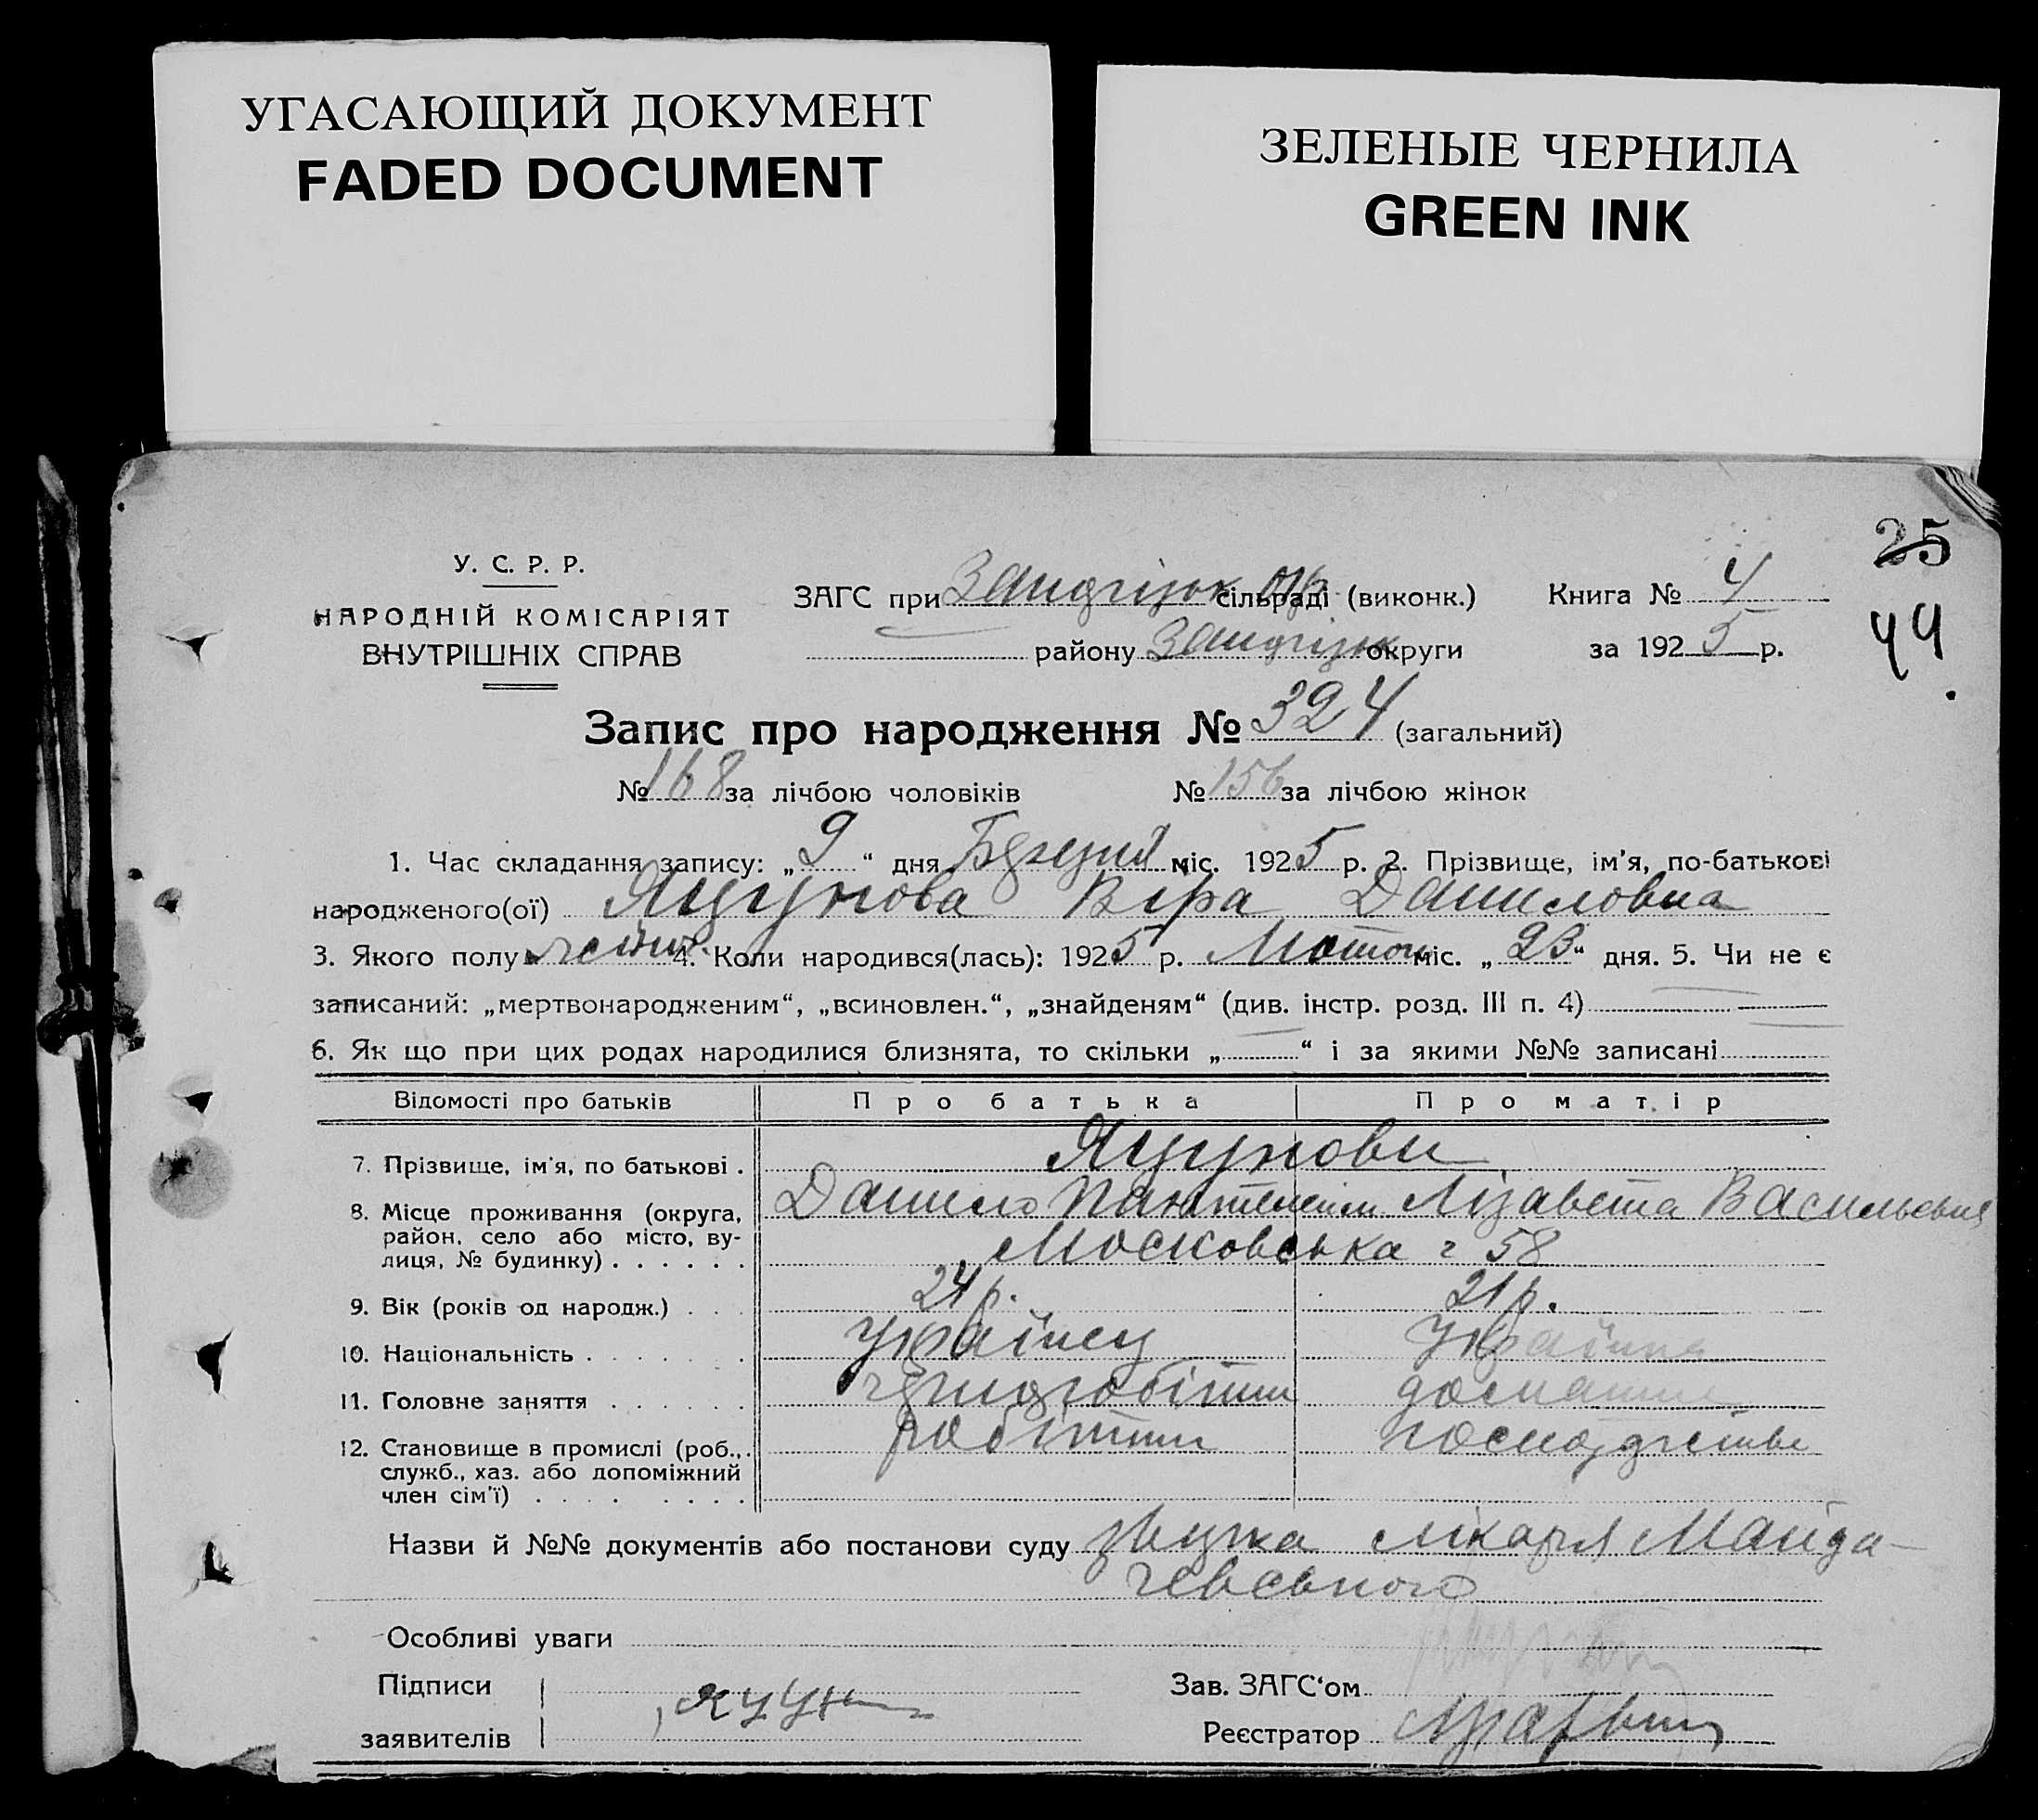 УГАСАЮЩИЙ ДОКУМЕНТ
FADED DOCUMENT
ЗЕЛЕНЫЕ ЧЕРНИЛА
GREEN INK
25
44
У. С. Р. Р.
НАРОДНІЙ КОМІСАРІЯТ
ВНУТРІШНІХ СПРАВ
ЗАГС при сільраді (виконк.)
району округи
Книга № 4
за 1925 р.
Запис про народження № 324 (загальний)
№ 168 за лічбою чоловіків № 156 за лічбою жінок
1. Час складання запису: „9“ дня Березня міс. 1925 р. 2. Прізвище, ім'я, по-батькові
народженого(ої) Яцунова Віра Даниловна
3. Якого полу 4. Коли народився(лась): 1925 р. міс. „23“ дня. 5. Чи не є
записаний: „мертвонародженим“, „всиновлен.“, „знайденям“ (див. інстр. розд. III п. 4)
6. Як що при цих родах народилися близнята, то скільки „ “ і за якими №№ записані
Відомості про батьків Про батька Про матір
7. Прізвище, ім'я, по батькові . Яцунови
8. Місце проживання (округа, Данило Лізавета Васильевна
район, село або місто, ву- Московська 58
лиця, № будинку) . . . . . .
9. Вік (років од народж.) . . . 24 р. 21 р.
10. Національність . . . . . . . Українец Українка
11. Головне заняття . . . . . . чорноробітник домашне
12. Становище в промислі (роб., робітник
служб., хаз. або допоміжний
член сім'ї) . . . . . . . .
Назви й №№ документів або постанови суду лікаря Майда-
чевського
Особливі уваги
Підписи
заявителів
Зав. ЗАГС'ом
Реєстратор